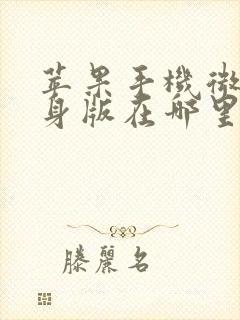 苹果手機微
身版在哪里
滕麗名